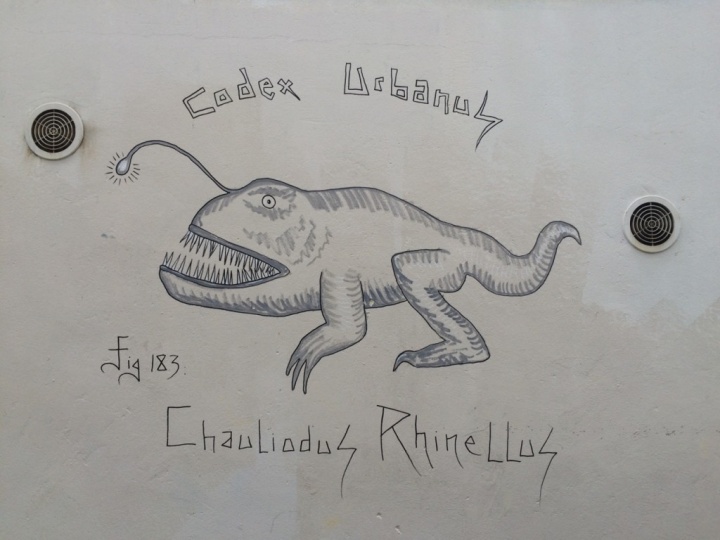 Codex Urbanus
Fig 183.
Chauliodus Rhinellus